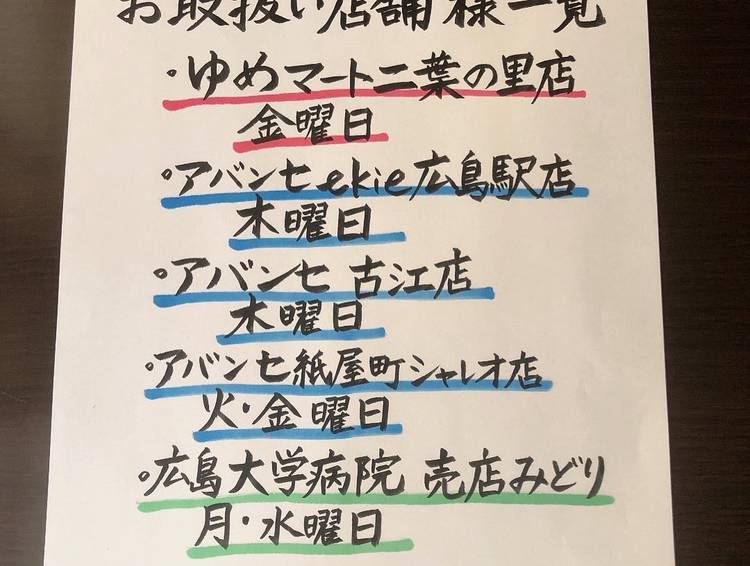 お取扱い店舗様一覧
・ゆめマート二葉の里店
金曜日
・アバンセekie広島駅店
木曜日
・アバンセ 古江店
木曜日
・アバンセ紙屋町シャレオ店
火・金曜日
・広島大学病院 売店みどり
月・水曜日